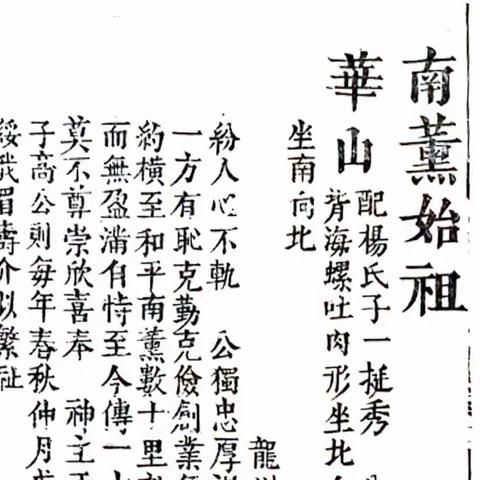 南薰始祖
華山
配楊氏子一挺秀
背海螺吐肉形坐北
坐南向北
龍
紛人心不軌　公獨忠厚
一方有恥克勤克儉創業
約橫至和平南薰數十里
而無盈滿自恃至今傳一
莫不尊崇欣喜奉　神主
子高公則每年春秋仲月
綏我眉壽介以繁祉